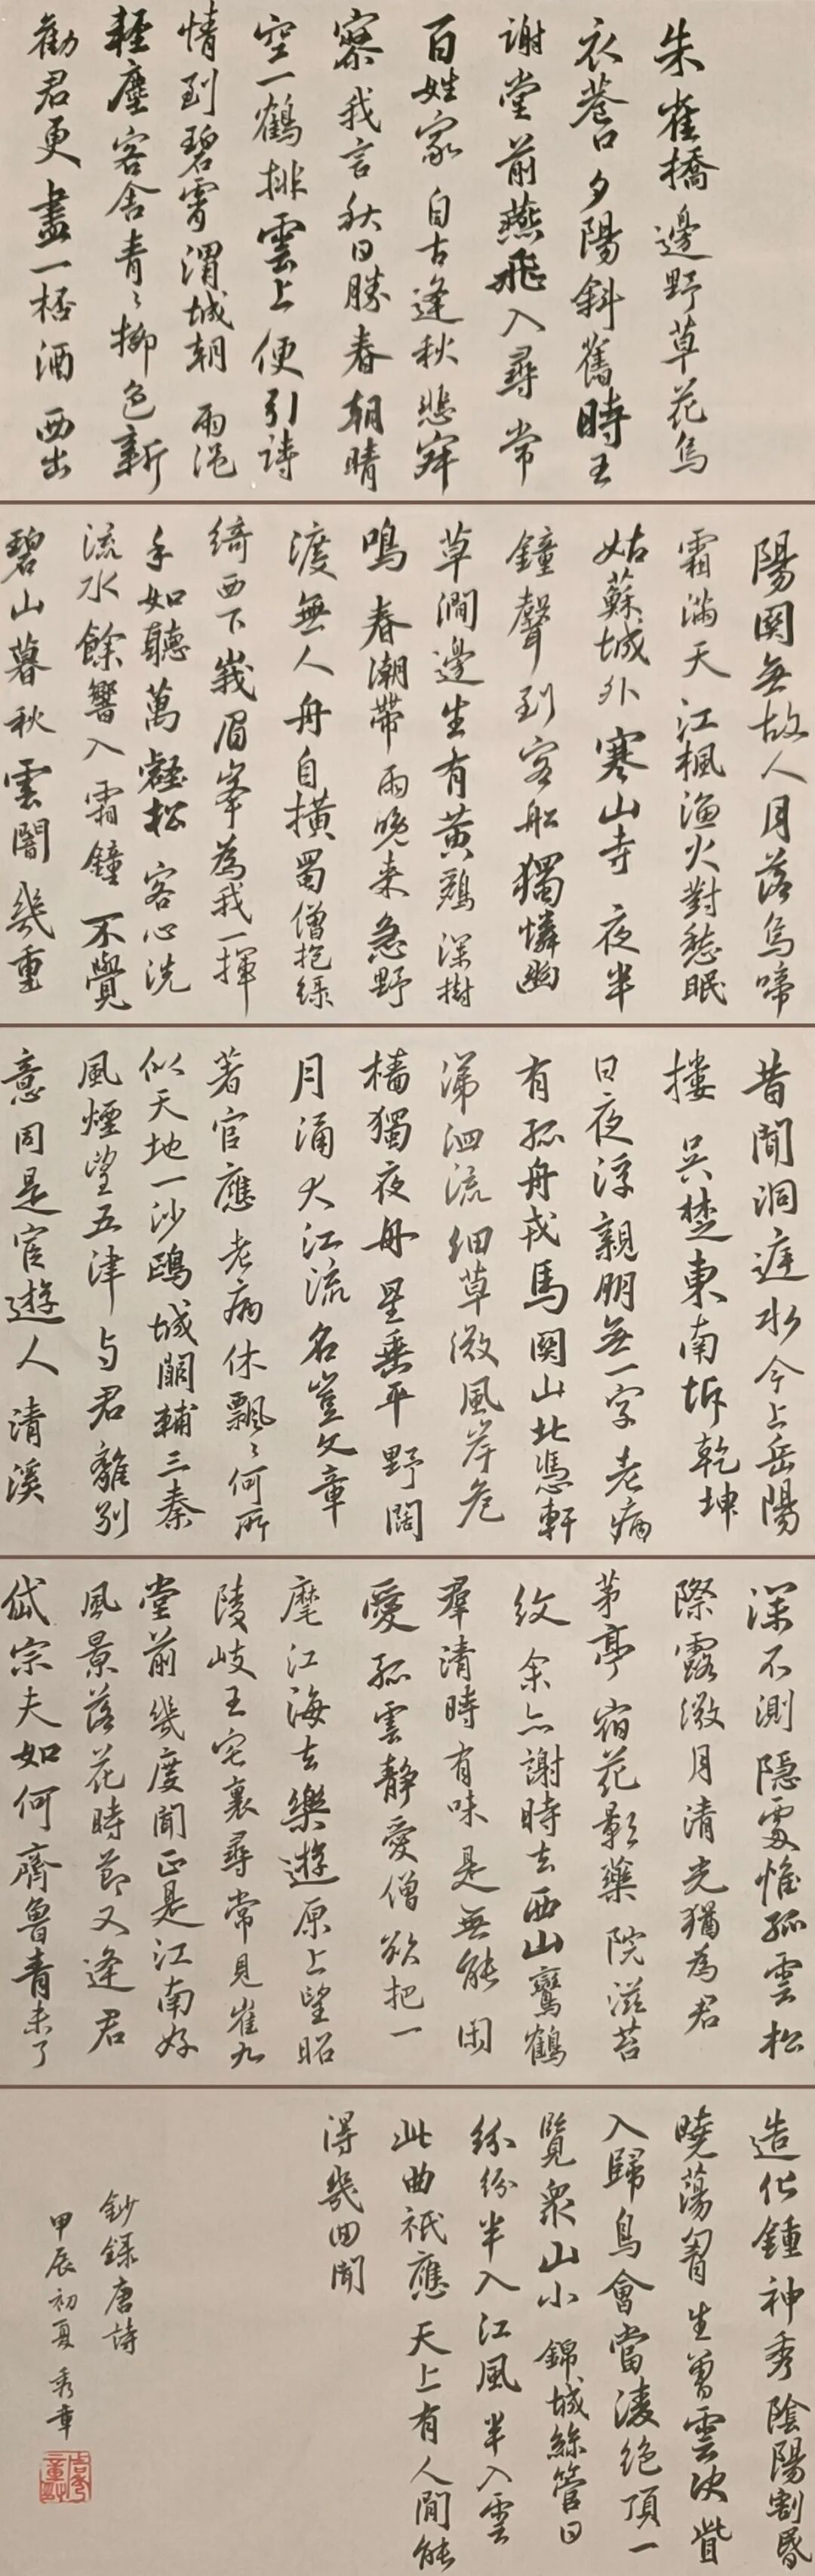 朱雀橋邊野草花烏
衣巷口夕陽斜舊時王
謝堂前燕飛入尋常
百姓家自古逢秋悲寂
寥我言秋日勝春朝晴
空一鶴排雲上便引詩
情到碧霄渭城朝雨浥
輕塵客舍青〻柳色新
勸君更盡一桮酒西出
陽關無故人月落烏啼
霜滿天江楓漁火對愁眠
姑蘇城外寒山寺夜半
鐘聲到客船獨憐幽
草澗邊生有黃鸝深樹
鳴春潮帶雨晚來急野
渡無人舟自橫蜀僧抱綠
綺西下峩眉峯為我一揮
手如聽萬壑松客心洗
流水餘響入霜鐘不覺
碧山暮秋雲闇幾重
昔聞洞庭水今上岳陽
樓吳楚東南坼乾坤
日夜浮親朋無一字老病
有孤舟戎馬關山北憑軒
涕泗流細草微風岸危
檣獨夜舟星垂平野闊
月涌大江流名豈文章
著官應老病休飄〻何所
似天地一沙鷗城闕輔三秦
風煙望五津与君離別
意同是宦遊人清溪
深不測隱處惟孤雲松
際露微月清光猶為君
茅亭宿花影藥院滋苔
紋余亦謝時去西山鸞鶴
羣清時有味是無能閑
愛孤雲靜愛僧欲把一
麾江海去樂遊原上望昭
陵岐王宅裏尋常見崔九
堂前幾度聞正是江南好
風景落花時節又逢君
岱宗夫如何齊魯青未了
造化鍾神秀陰陽割昏
曉蕩胷生曾雲決眥
入歸鳥會當淩絕頂一
覽衆山小錦城絲管日
紛紛半入江風半入雲
此曲祇應天上有人間能
得幾回聞
鈔錄唐詩
甲辰初夏秀章